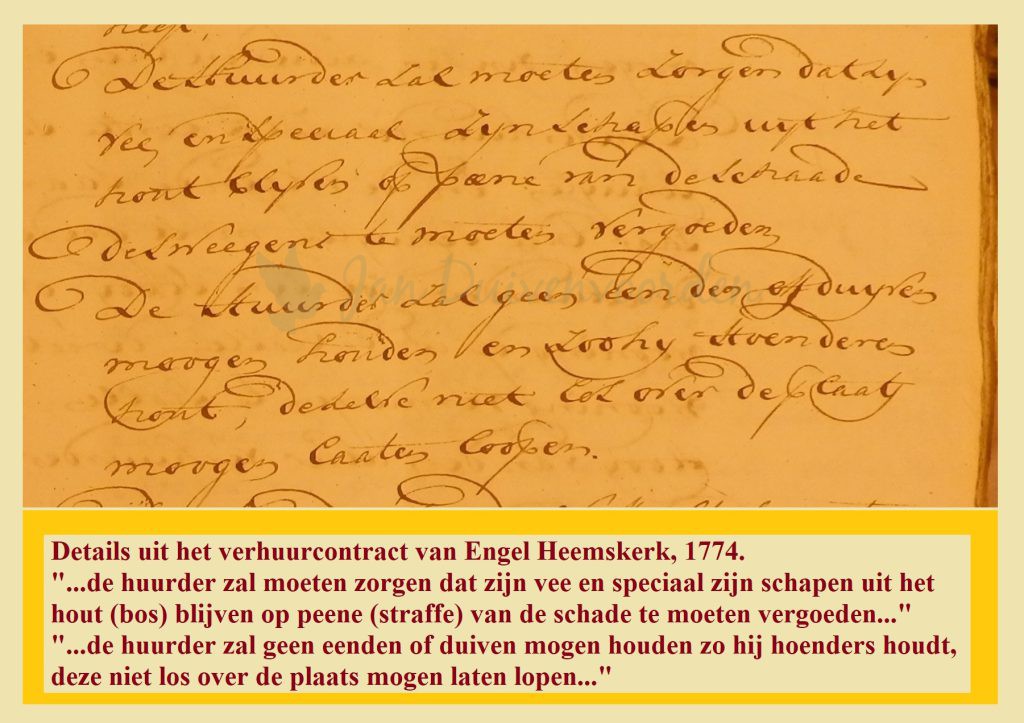 De Huurder zal moeten zorgen dat zyn
vee en speciaal zyn schapen uyt het
hout blyven op pœne van de schaade
desweegens te moeten vergoeden
De Huurder zal geen eenden of duyven
moogen houden en zoo hy hoenderen
hout, deselve niet los over de plaats
moogen laaten loopen.
Jan Duivenvoorden
Details uit het verhuurcontract van Engel Heemskerk, 1774.
"...de huurder zal moeten zorgen dat zijn vee en speciaal zijn schapen uit het
hout (bos) blijven op peene (straffe) van de schade te moeten vergoeden..."
"...de huurder zal geen eenden of duiven mogen houden zo hij hoenders houdt,
deze niet los over de plaats mogen laten lopen..."